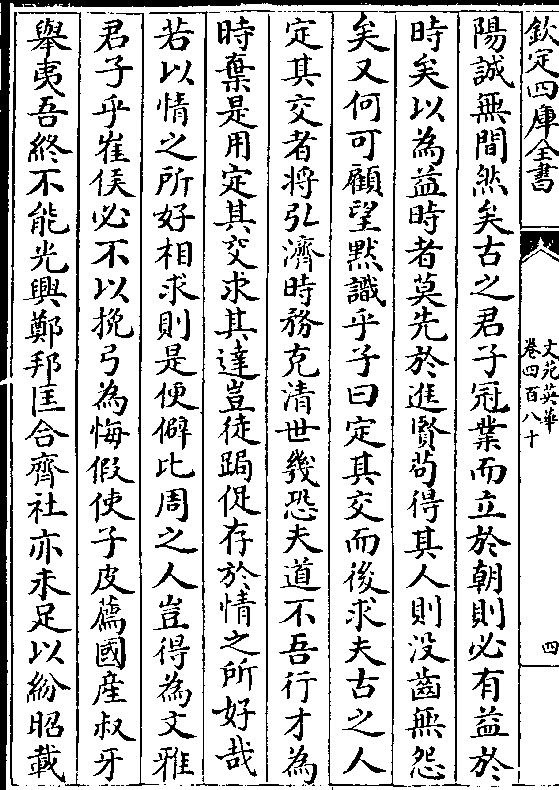 欽定四庫全書
文苑英華
卷四百八十
四
陽誠無間然矣古之君子冠業而立於朝則必有益於
時矣以為益時者莫先於進賢苟得其人則沒齒無怨
矣又何可顧望默識乎子曰定其交而後求夫古之人
定其交者將引濟時務克清世幾恐夫道不吾行才為
時棄是用定其交求其達豈徒跼促存於情之所好哉
若以情之所好相求則是便僻比周之人豈得為文雅
君子乎崔侯必不以挽弓為悔假使子皮薦國産叔牙
舉夷吾終不能光興鄭邦匡合齊社亦未足以紛昭載